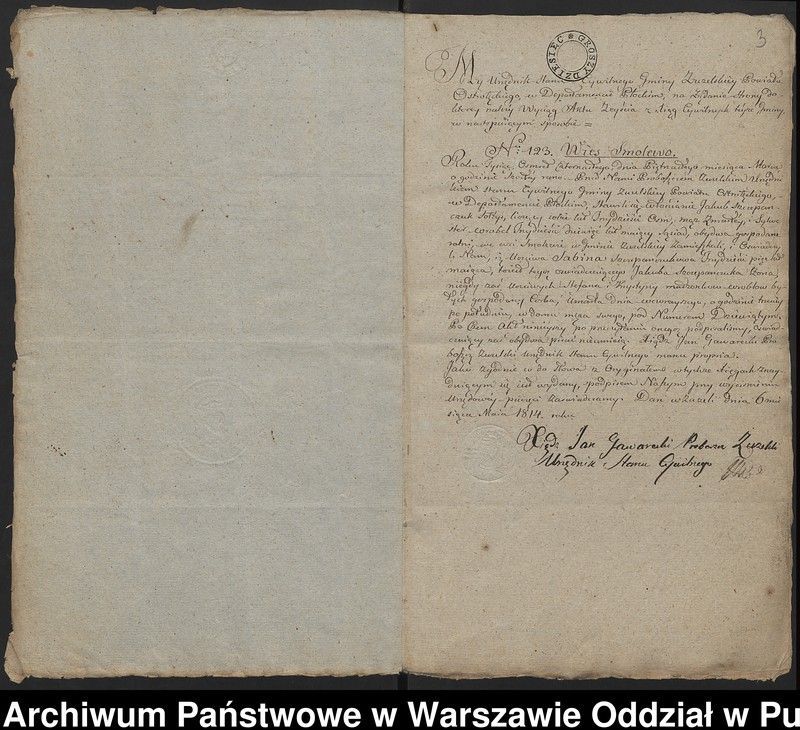 3
DZIESIĘĆ GROSZY
My Urzędnik Stanu Cywilnego Gminy Zuzelskiey Powiatu
Ostrołęckiego, w Departamencie Płockim, na żądanie Strony
wydaie Wyciąg Aktu Zeyścia z Xiąg Cywilnych teyże Gminy
w następuiącym sposobie =
No 123. Wieś Smolewo.
Roku Tysiąc Osmset Czternastego, dnia Piętnastego miesiąca Marca
o godzinie szóstey rano. Przed Nami Proboszczem Zuzelskim Urzędni
kiem Stanu Cywilnego Gminy Zuzelskiey Powiatu Ostrołęckiego,
w Departamencie Płockim, Stawili się włościanie Jakub Szczepań
czuk Sołtys, liczący sobie lat Trzydzieści Osm, mąż zmarłey, i Sylwe
ster Wróbel Trzydzieści dziewięć lat maiący Sąsiad, obydwa gospodarze
rolni, we wsi Smolewie w Gminie Zuzelskiey Zamieszkali, i Oświadczy
li Nam, iż Uczciwa Sabina Szczepańczukowa Trzydzieści pięć lat
maiąca, tegoż oświadczaiącego Jakuba Szczepańczuka Żona,
niegdy zaś Uczciwych Stefana i Krystyny małżonków Wróblów by
łych gospodarzy Córka, Umarła dnia wczorayszego, o godzinie trzeciey
po południu, w domu męża swego, pod Numerem Dziewiątym.
Po czym Akt ninieyszy po przeczytaniu onegoż podpisaliśmy, Oświad
czaiący zaś obydwa pisać nieumieią. Xiądz Jan Gawarecki Pro
boszcz Zuzelski Urzędnik Stanu Cywilnego manu propria.
Jako zgodnie co do słowa z Oryginałem w tychże Xięgach znay
duiącym się iest wydany, podpisem Naszym przy wyciśnieniu
Urzędowey pieczęci zaświadczamy. Dan w Zuzeli dnia 6 mie
siąca Maia 1814. roku
Xdz Jan Gawarecki Proboszcz Zuzelski
Urzędnik Stanu Cywilnego
Archiwum Państwowe w Warszawie Oddział w Pu